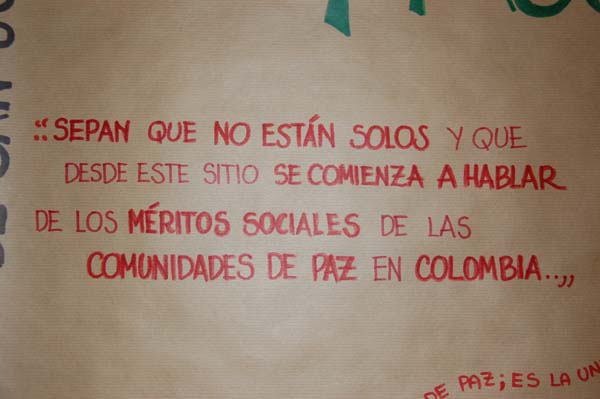 .:SEPAN QUE NO ESTÁN SOLOS Y QUE
DESDE ESTE SITIO SE COMIENZA A HABLAR
DE LOS MÉRITOS SOCIALES DE LAS
COMUNIDADES DE PAZ EN COLOMBIA..,,
DE PAZ; ES LA UN